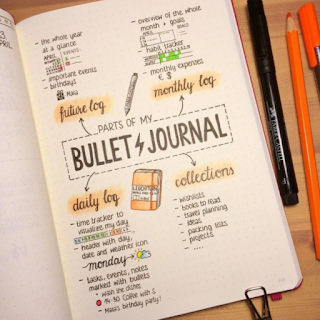 - the whole year
at a glance
APRIL
EVENTS
- important events
- birthdays
Maia
future log
- overview of the whole
month + goals
habit tracker
- monthly expenses
€ $
monthly log
PARTS OF MY
BULLET JOURNAL
daily log
- time tracker to
visualize my day
- header with day,
date and weather icon
monday →
- tasks, events, notes
marked with bullets
- wash the dishes
14:30 Coffee with S.
- Maia's birthday party!
LEUCHTTURM
collections
- wishlists
- books to read
- travel planning
- ideas
- packing lists
- projects
- ....
3
APRIL